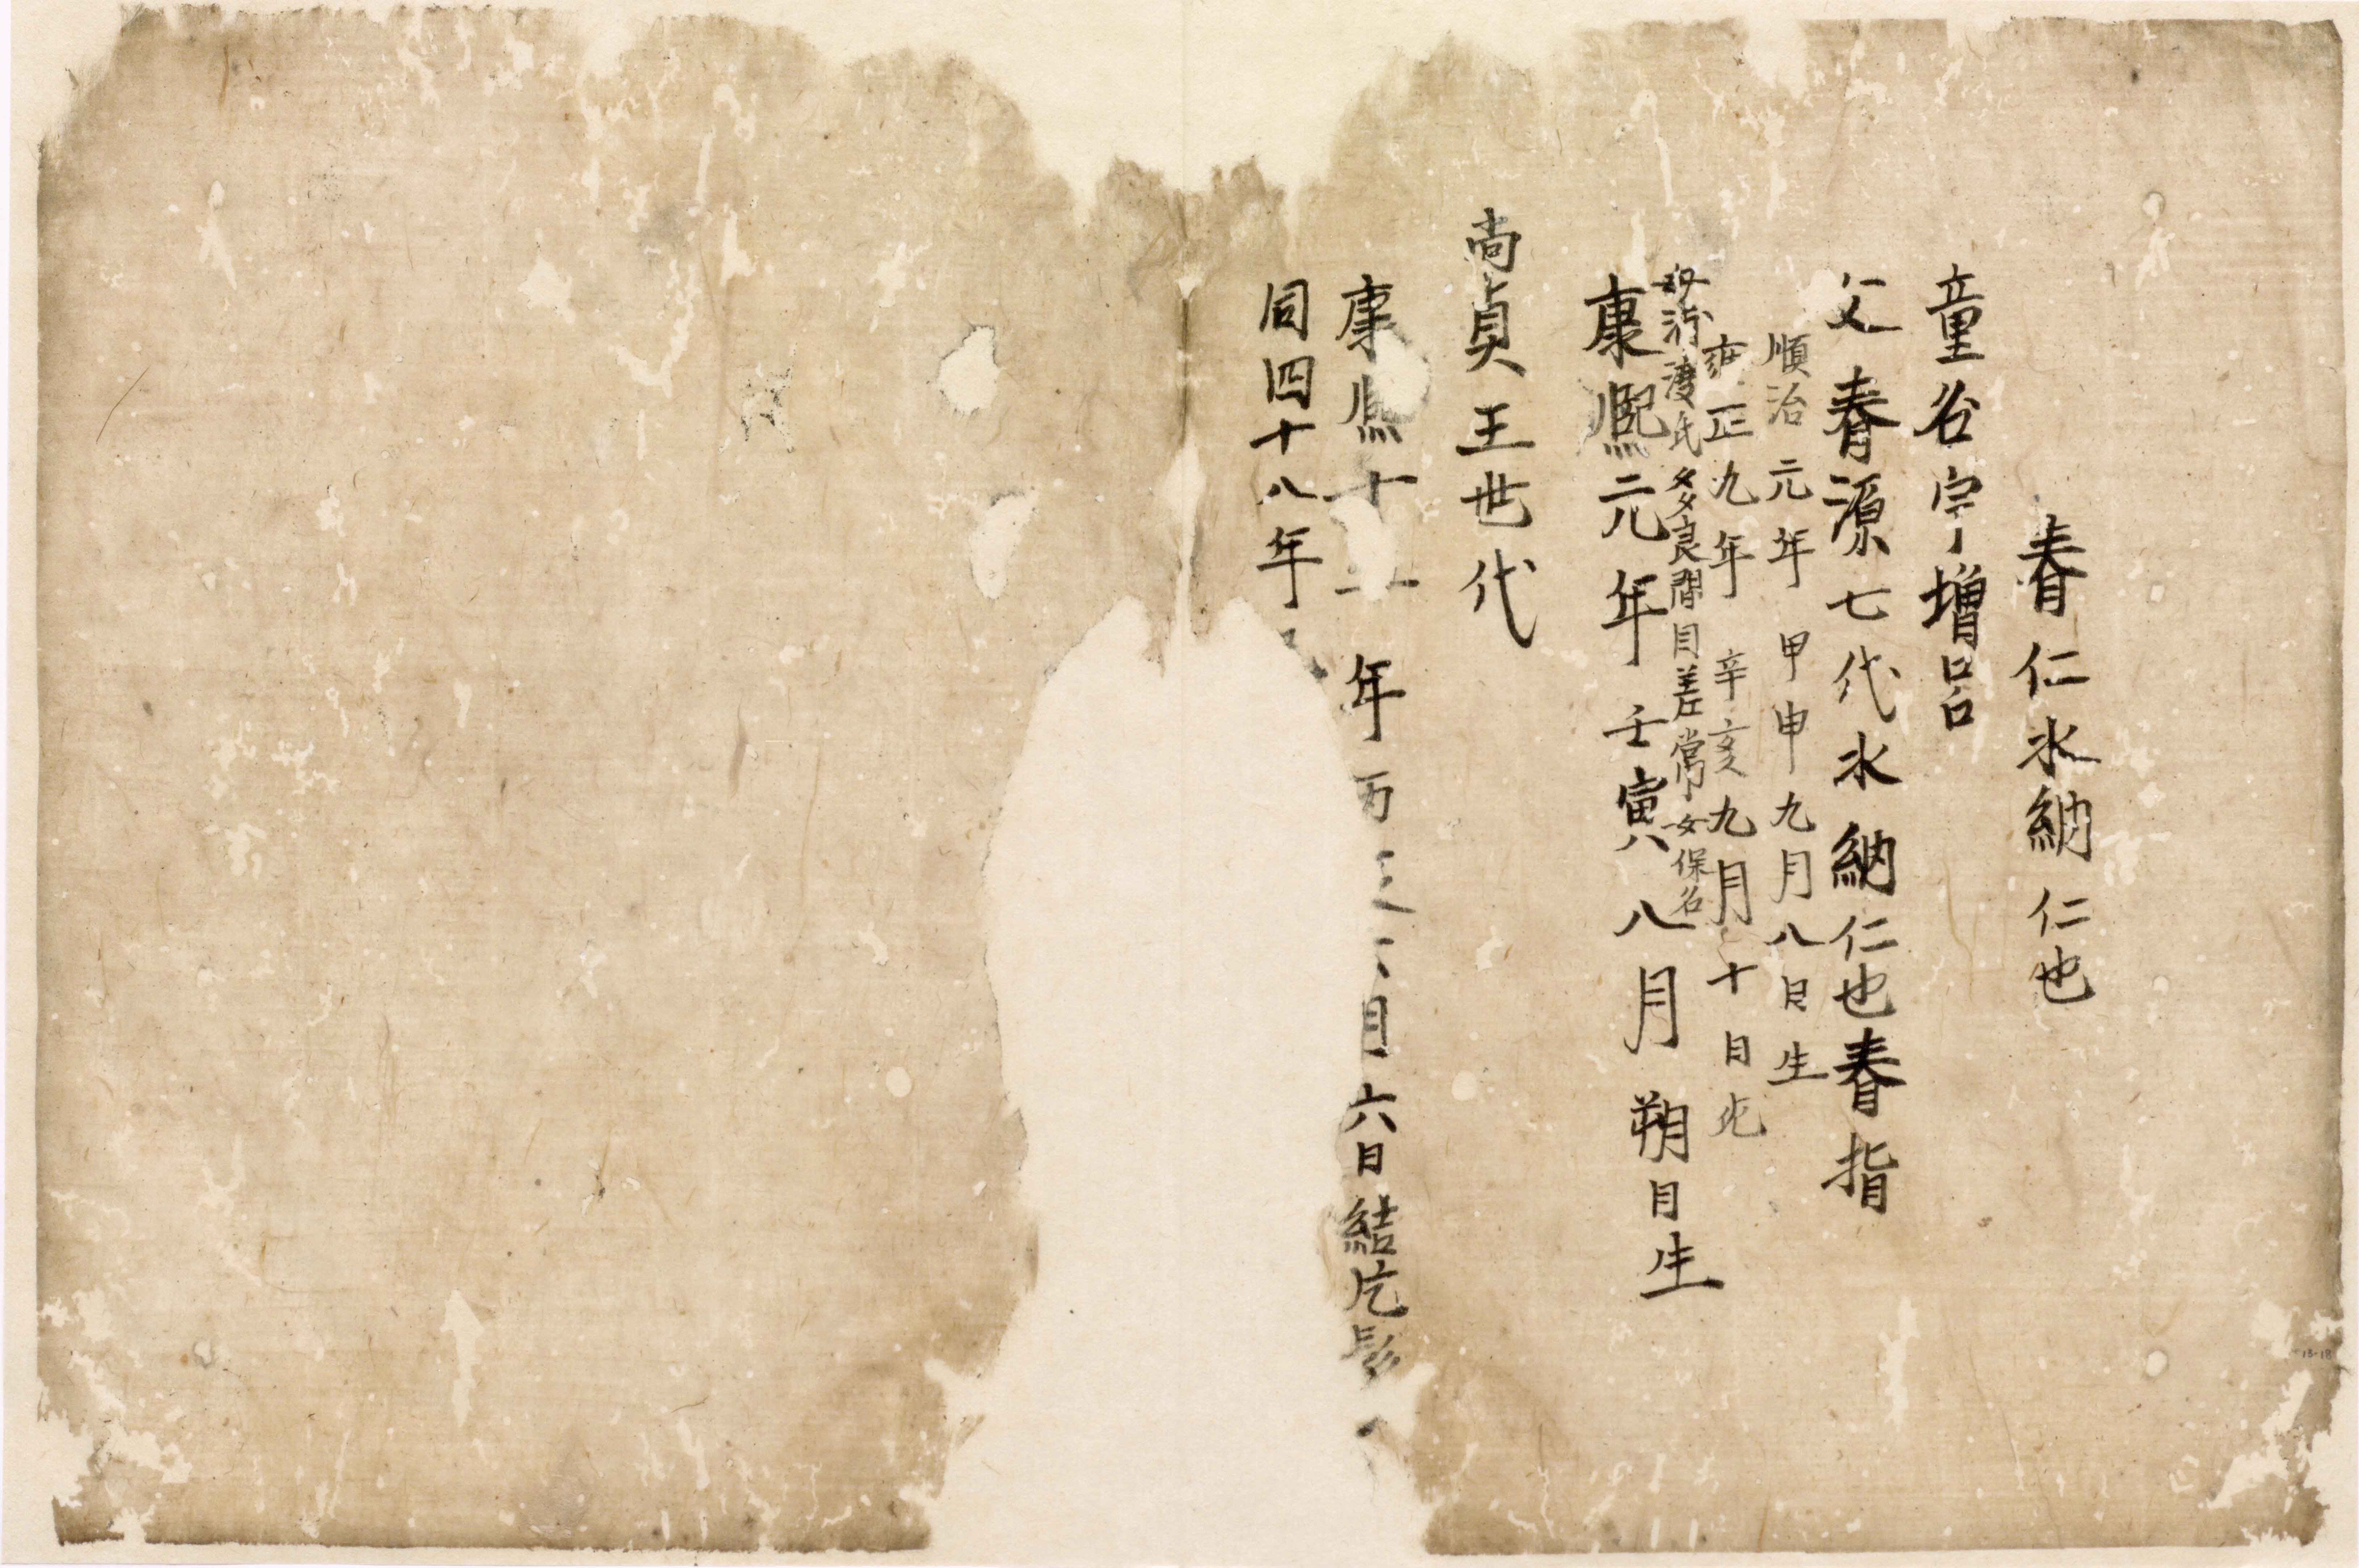 春仁氺納仁也
童名宇増呂
父春源七代氺納仁也春指
順治元年甲申九月八日生
雍正九年辛亥九月十日死
母済渡氏多良間目差常女保名
康熈元年壬寅八月朔日生
尚貞王世代
康熈十五年丙辰二月六日結片髪
同四十八年